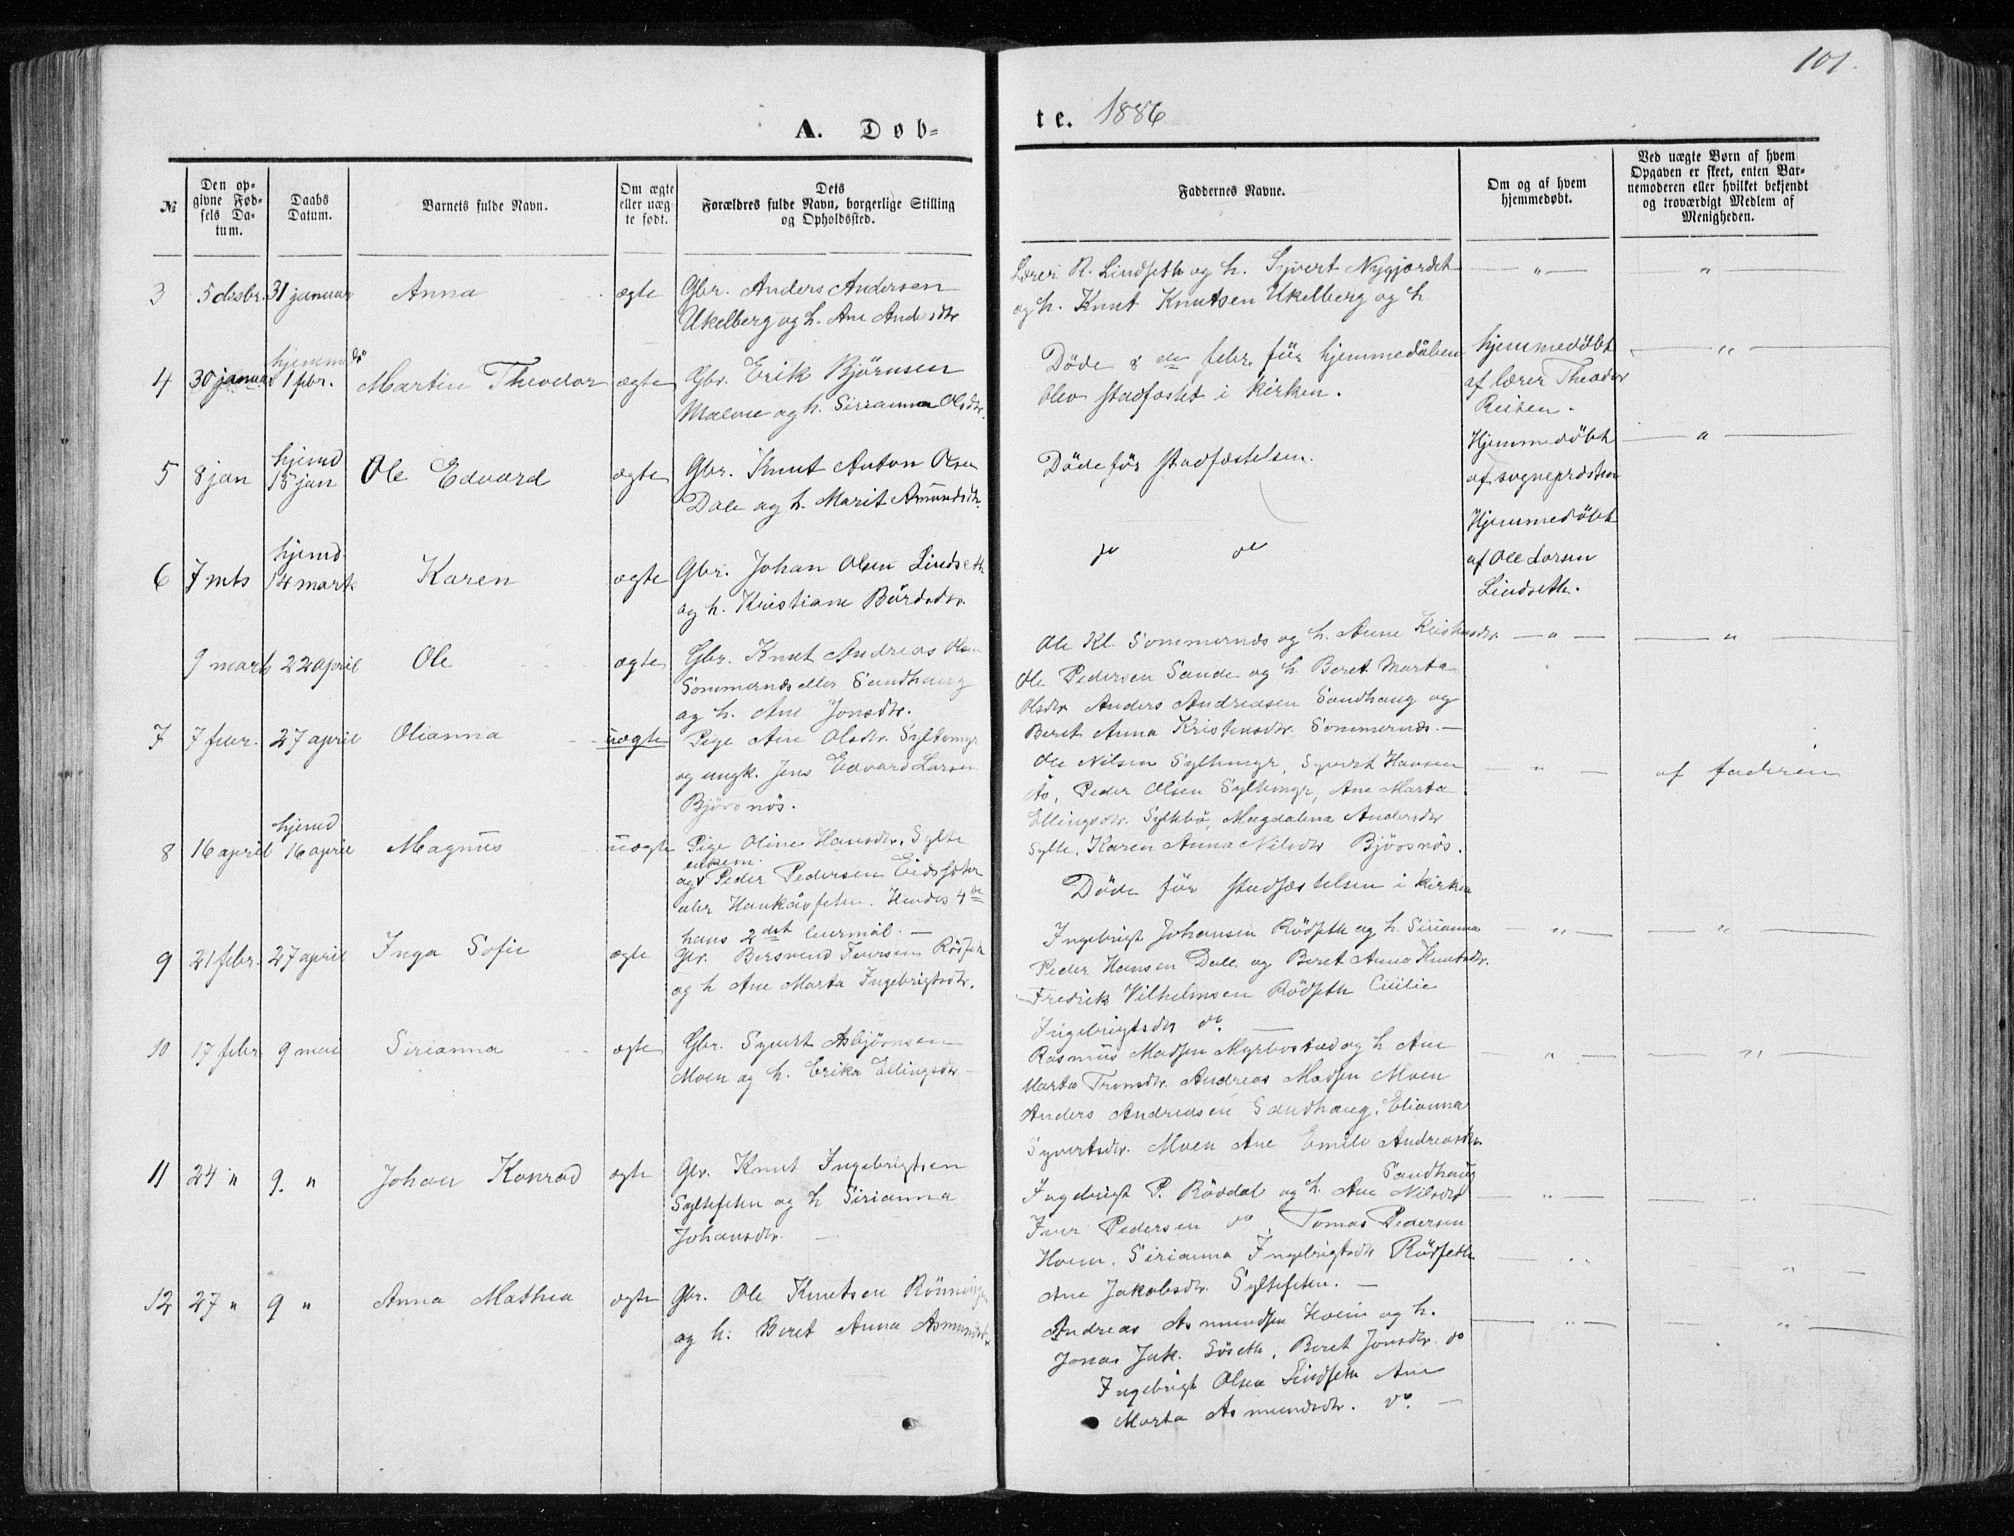 101.
A. Døb-
te. 1886
№
Den op-
givne Fød-
sels Da-
tum.
Daabs
Datum.
Barnets fulde Navn.
Om ægte
eller uæg-
te født.
Dets
Forældres fulde Navn, borgerlige Stilling
og Opholdssted.
Faddernes Navne.
Om og af hvem
hjemmedøbt.
Ved uægte Børn af hvem
Opgaven er skeet, enten Bar-
nemoderen eller hvilket bekjendt
og troværdigt Medlem af
Menigheden.
3 5 desbr. 31 januar Anna ægte Gbr. Anders Andersen
Ukelberg og h. Ane Andersdtr
Lærer R. Lindseth og h. Syvert Nygjærdet — " —
og h. Knut Knutsen Ukelberg og h.
"
hjemmedö
4 30 januar 1 febr. Martin Theodor ægte Gbr. Erik Björnsen
Malme og h. Sirianna Olsdtr.
Døde 8de febr. för hjemmedåben
blev stadfæstet i kirken.
hjemmedøbt
af lærer Theodor
Reiten.
— " —
hjemd
5 8 jan 15 jan Ole Edvard ægte Gbr. Knut Anton Olsen
Dale og h. Marit Amundsdtr.
Døde för stadfæstelsen.
Hjemmedøbt
af sognepræsten
— " —
hjemd
6 7 mts 14 marts Karen ægte Gbr. Johan Olsen Lindseth
og h. Kristiane Bårdsdtr.
do do
Hjemmedøbt
af Ole Larsen
Lindseth.
9 marts 22 april Ole ægte Gbr. Knut Andreas Olsen
Sommernæs eller Sandhaug
og h. Ane Jonsdtr.
Ole Kl. Sommernæs og h. Anne Kristensdtr. — " —
Ole Pedersen Sande og h. Beret Marta
Olsdtr. Anders Andreasen Sandhaug og
Beret Anna Kristensdtr. Sommernæs. —
— " —
7 7 febr. 27 april Olianna uægte Pige Ane Olsdtr. Syltemyr
og ungk. Jens Edvard Larsen
Bjørsnös.
Ole Nilsen Syltemyr, Syvert Hansen
Ås, Peder Olsen Syltemyr, Ane Marta
Ellingsdtr. Syltebö, Magdalena Andersdtr
Sylte. Karen Anna Nilsdtr Bjørsnös.
— " —
af faderen
hjemd
8 16 april 16 april Magnus uægte Pige Oline Hansdtr. Sylte
enkem.
og Peder Pedersen Eidssæter
eller Haukåsseten. Hendes 4de
hans 2det leiermål. —
Døde för stadfæstelsen i kirken
9 21 febr. 27 april Inga Sofie ægte Gbr. Bersvend Iversen Rödseth
og h Ane Marta Ingebrigtsdtr.
Ingebrigt Johansen Rödseth og h. Sirianna — " —
Peder Hansen Dale og Beret Anna Knutsdtr.
Fredrik Vilhelmsen Rödseth Cicilie
Ingebrigtsdtr do. —
— " —
10 17 febr. 9 mai Sirianna ægte Gbr. Syvert Asbjørnsen
Moen og h. Erika Ellingsdtr. —
Rasmus Madsen Myrbostad og h. Ane
Marta Tronsdtr. Andreas Madsen Moen
Anders Andreasen Sandhaug. Elianna
Syvertsdtr. Moen Ane Emilie Andreasdtr.
Sandhaug
— " —
11 24 " 9. " Johan Konrad ægte Gbr. Knut Ingebrigtsen
Sylteseten og h Sirianna
Johansdtr. —
Ingebrigt P. Rövdal og h. Ane Nilsdtr
Iver Pedersen do. Tomas Pedersen
Hoem. Sirianna Ingebrigtsdtr Rödseth
Ane Jakobsdtr. Sylteseten. —
— " —
12 27 " 9 " Anna Mathea ægte Gbr. Ole Knutsen Rönningen
og h. Beret Anna Asmundsdtr.
Andreas Asmundsen Hoem og h.
Jonas Jak. Söseth, Beret Jonsdtr. do
Ingebrigt Olsen Lindseth Ane
Marta Asmundsdtr. do. —
— " —